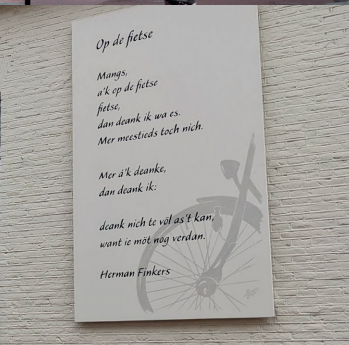 Op de fietse
Mangs,
a'k op de fietse
fietse,
dan deank ik wa es.
Mer meestieds toch nich.
Mer á'k deanke,
dan deank ik:
deank nich te völ as't kan,
want ie möt nog verdan.
Herman Finkers